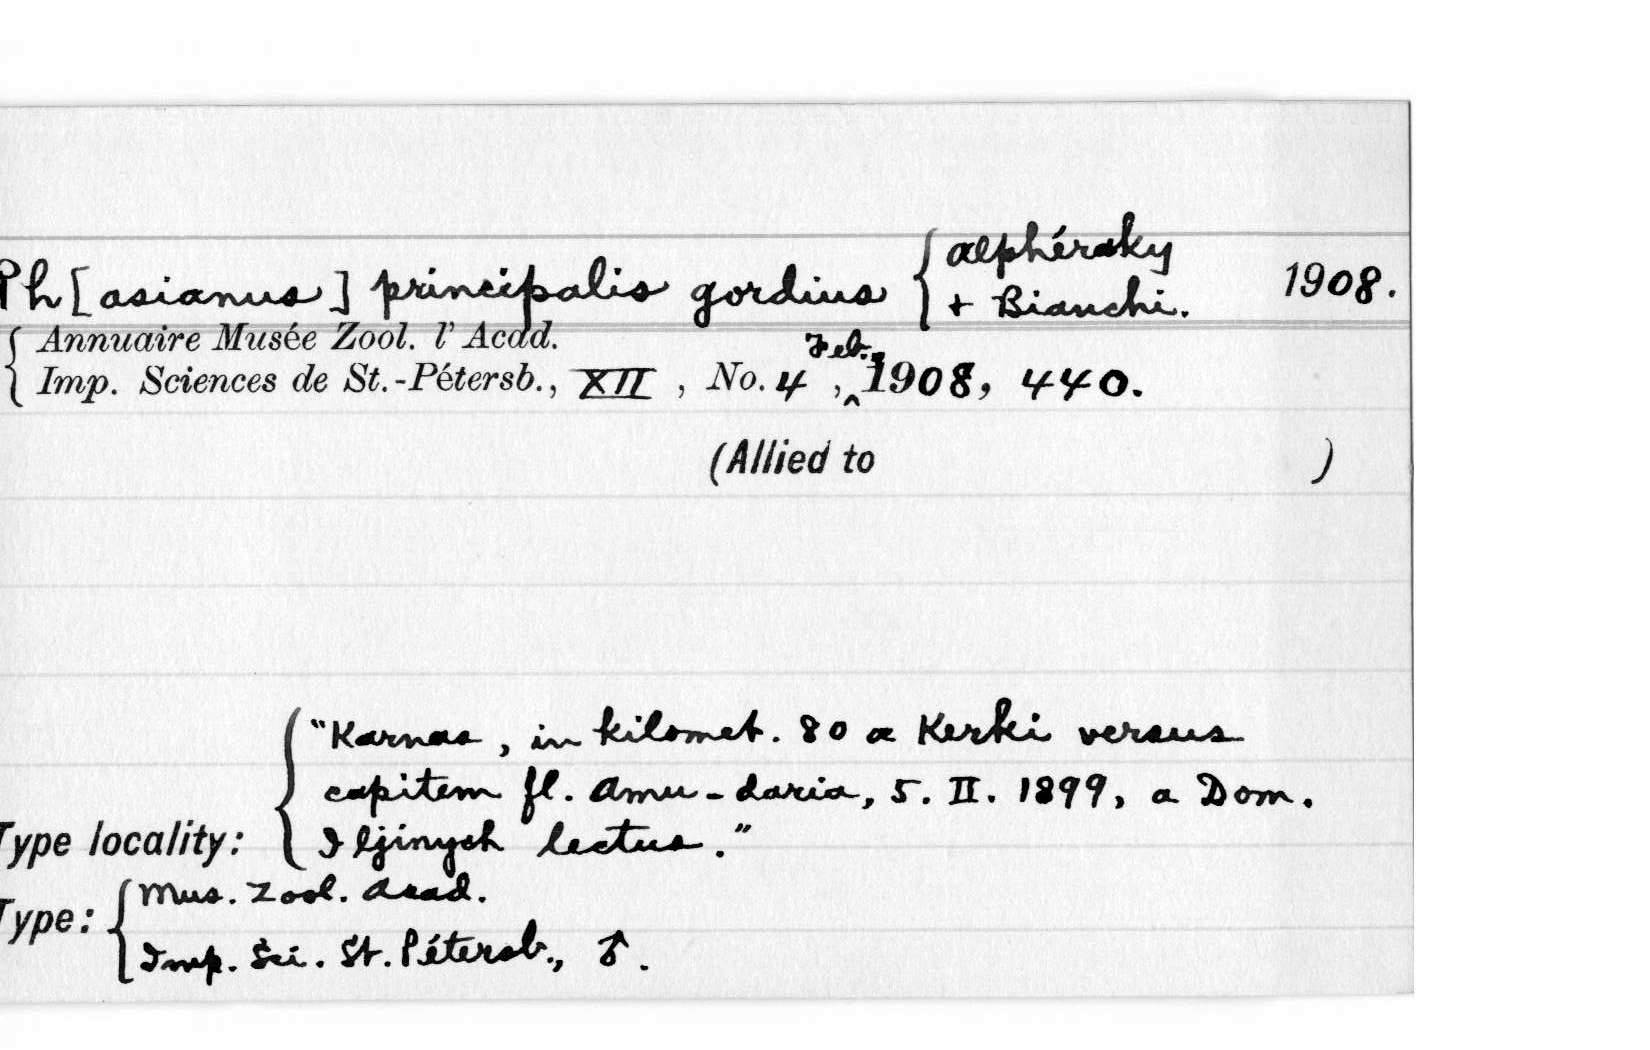 Ph[asianus] principalis gordius { Alphéraky
+ Bianchi. 1908.
{ Annuaire Musée Zool. l' Acad.
Imp. Sciences de St.-Pétersb., XII, No. 4, Feb. 1908, 440.
(Allied to )
{ "Karnas, in kilomet. 80 a Kerki versus
capitem fl. Amu-daria, 5. II. 1899, a Dom.
Type locality: Iljinych lectus."
{ Mus. Zool. Acad.
Type: Imp. Sci. St. Pétersb., ♂.